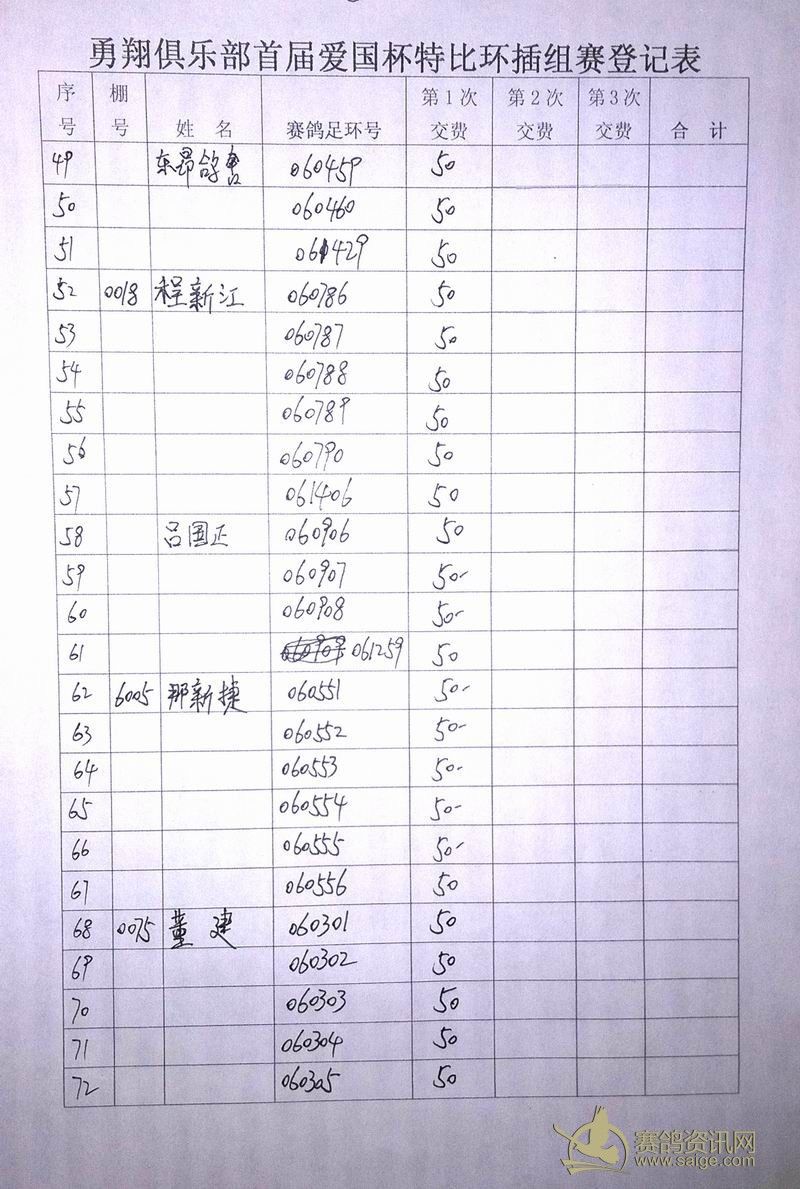 勇翔俱乐部首届爱国杯特比环插组赛登记表
序号 棚号 姓 名 赛鸽足环号 第1次交费 第2次交费 第3次交费 合 计
49 东昂鸽舍 060459 50
50 060460 50
51 061429 50
52 0018 程新江 060786 50
53 060787 50
54 060788 50
55 060789 50
56 060790 50
57 061406 50
58 吕国正 060906 50
59 060907 50-
60 060908 50-
61 061259 50
62 6005 那新捷 060551 50-
63 060552 50-
64 060553 50-
65 060554 50-
66 060555 50-
67 060556 50
68 0075 董建 060301 50
69 060302 50
70 060303 50
71 060304 50
72 060305 50
赛鸽资讯网
www.saige.com